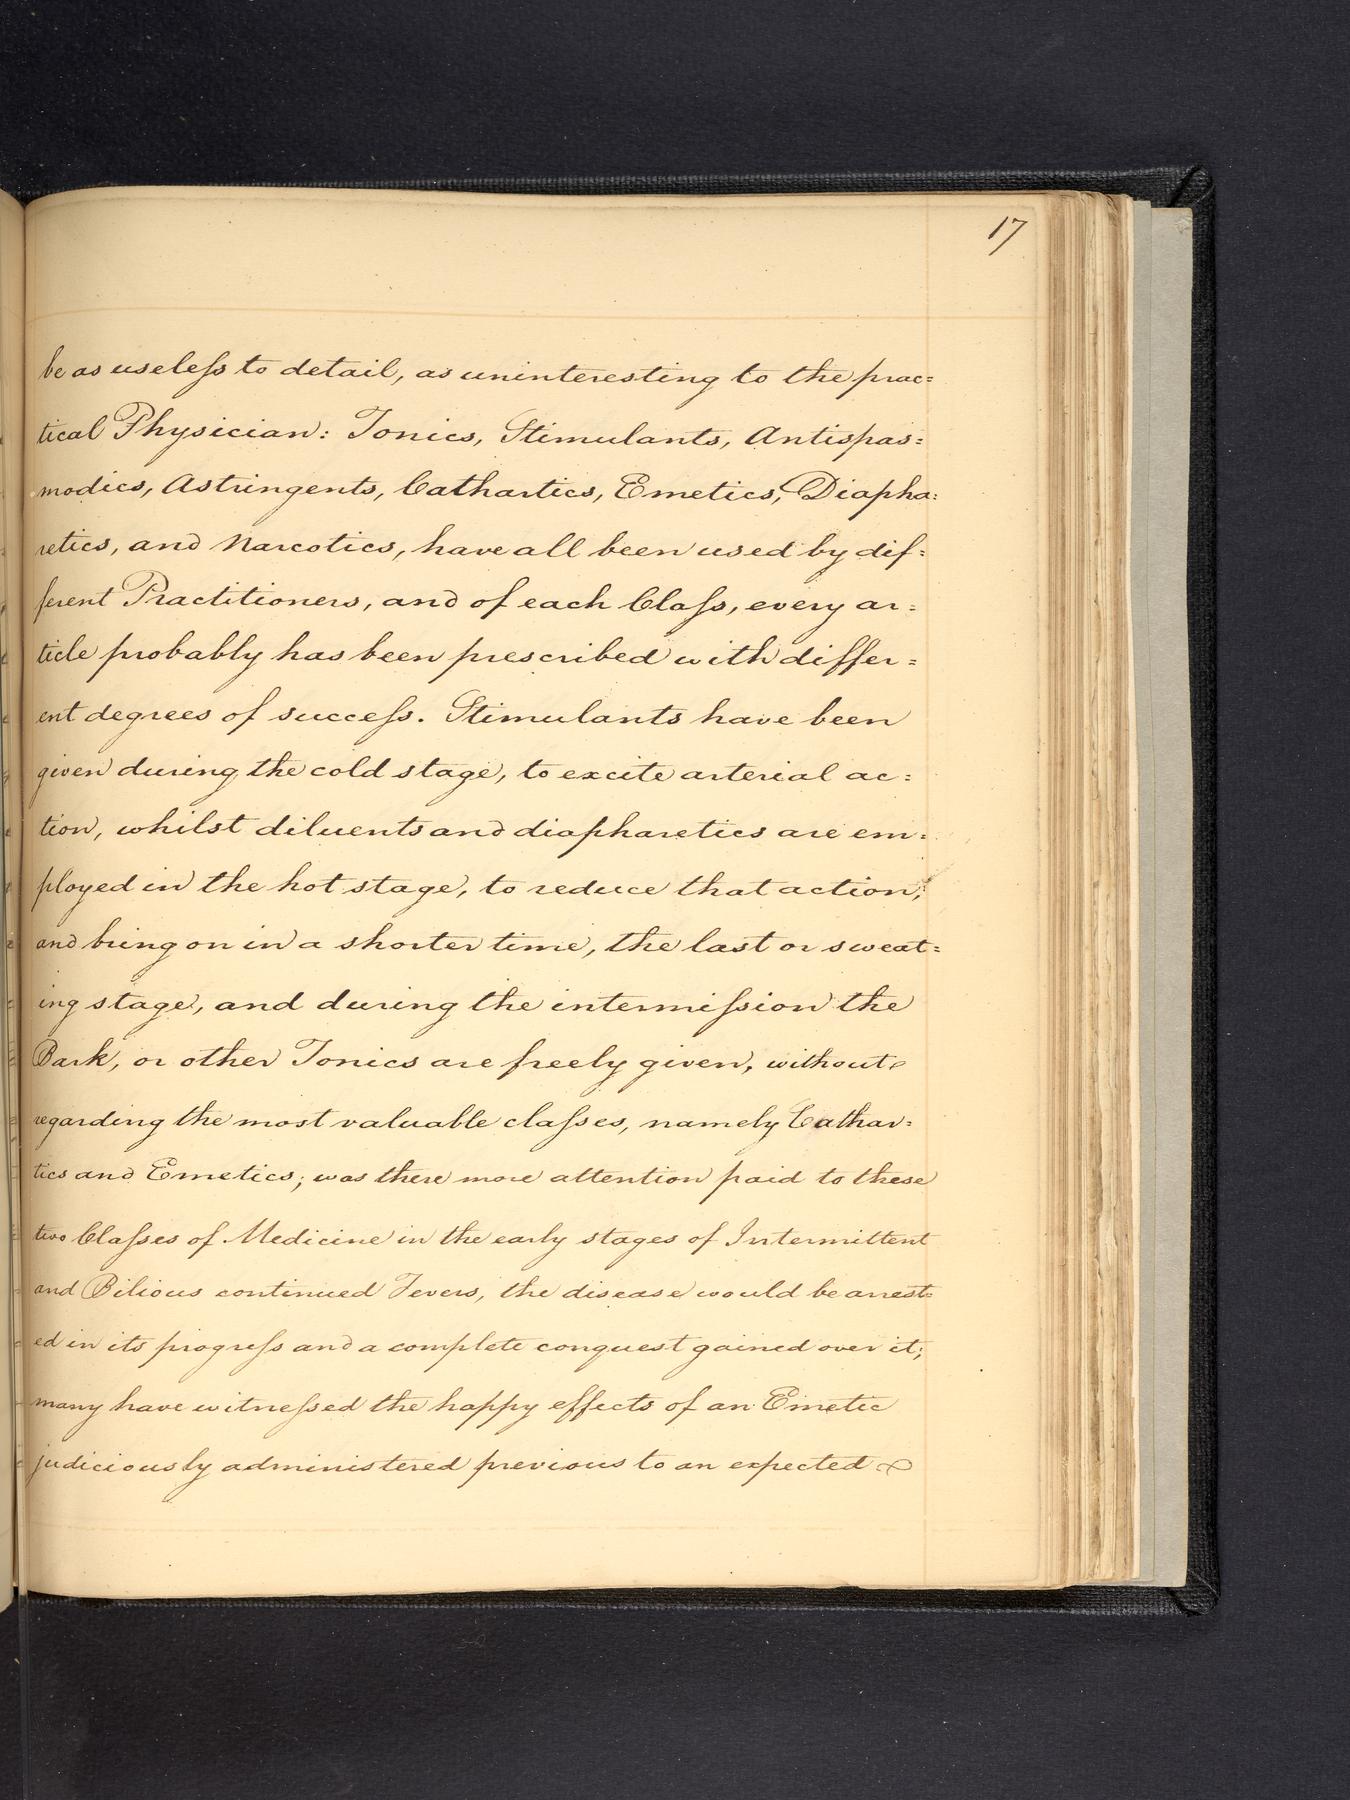 17
be as useleſs to detail, as uninteresting to the prac=
tical Physician: Tonics, Stimulants, Antispas=
modics, Astringents, Cathartics, Emetics, Diapha=
retics, and Narcotics, have all been used by dif=
ferent Practitioners, and of each Claſs, every ar=
ticle probably has been prescribed with differ=
ent degrees of succeſs. Stimulants have been
given during the cold stage, to excite arterial ac=
tion, whilst diluents and diapharetics are em=
ployed in the hot stage, to reduce that action;
and bring on in a shorter time, the last or sweat=
ing stage, and during the intermiſsion the
Bark, or other Tonics are freely given, without
regarding the most valuable claſses, namely Cathar=
tics and Emetics; was there more attention paid to these
two Claſses of Medicine in the early stages of Intermittent
and Bilious continued Fevers, the disease would be arrest=
ed in its progreſs and a complete conquest gained over it;
many have witneſsed the happy effects of an Emetic
judiciously administered previous to an expected